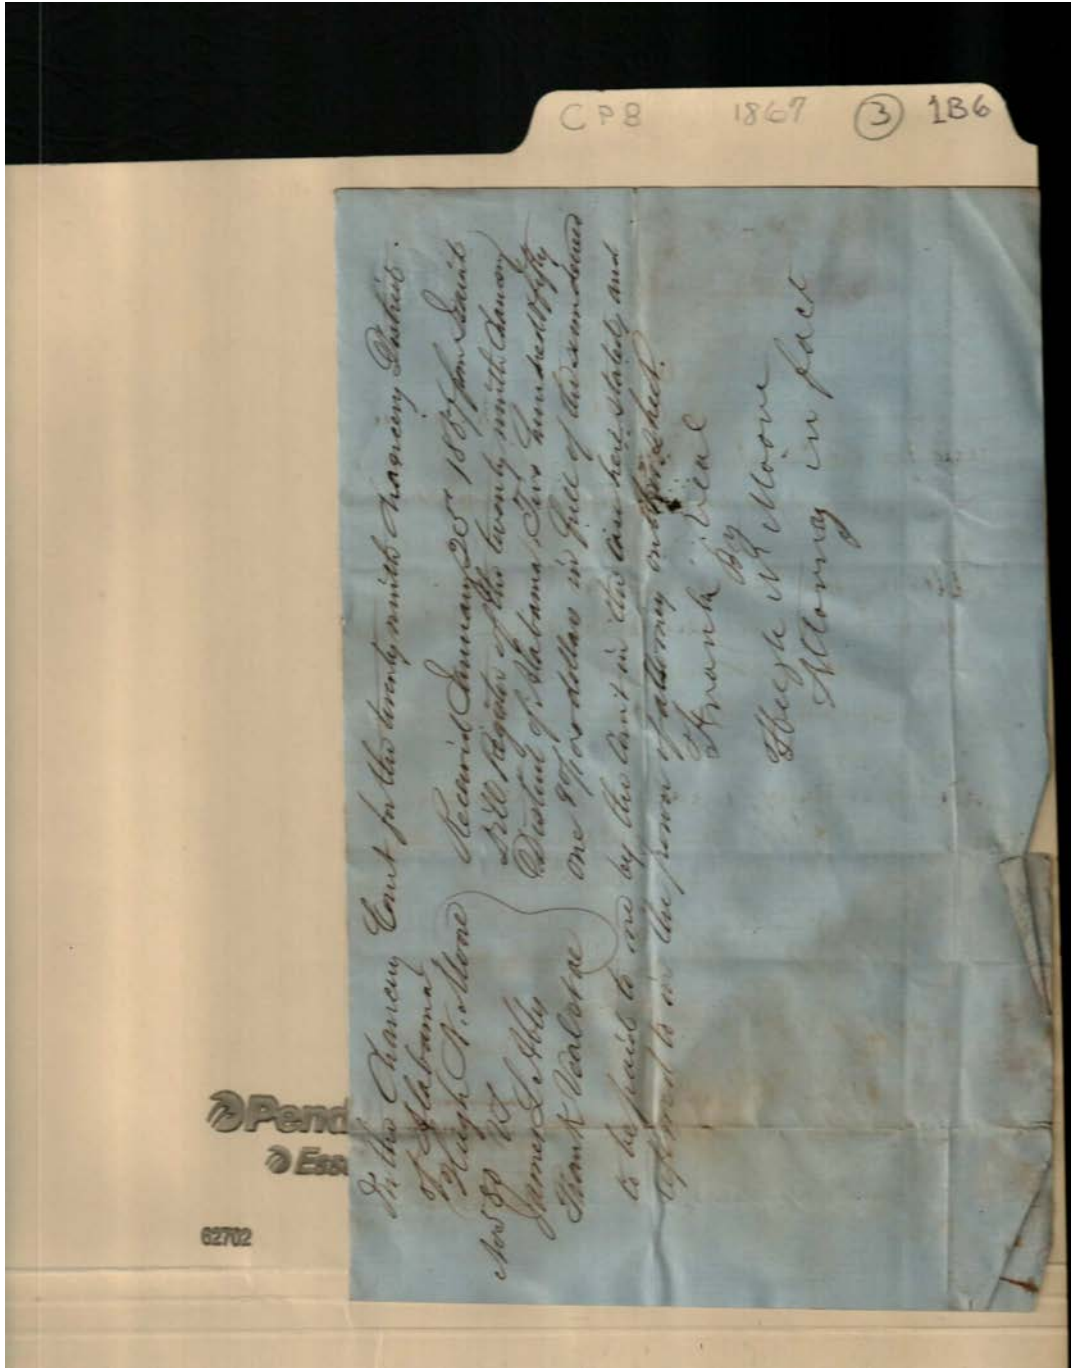 CPB 1867 3 1B6
In the Chancery Court for the twenty ninth chancery District
of Alabama
Hugh N. Moore
No 80 vs
James L Ably
Frank Veal et al
Received January 25 1867 from Isaiah
Dill Register of the twenty ninth Chancery
District of Alabama Two hundred & fifty
one dollars in full of the sum decreed
to be paid to me by the court in the case here stated and
in the power of attorney on
Frank Veal
By
Hugh N Moore
Attorney in fact
Pend
Ess
62702